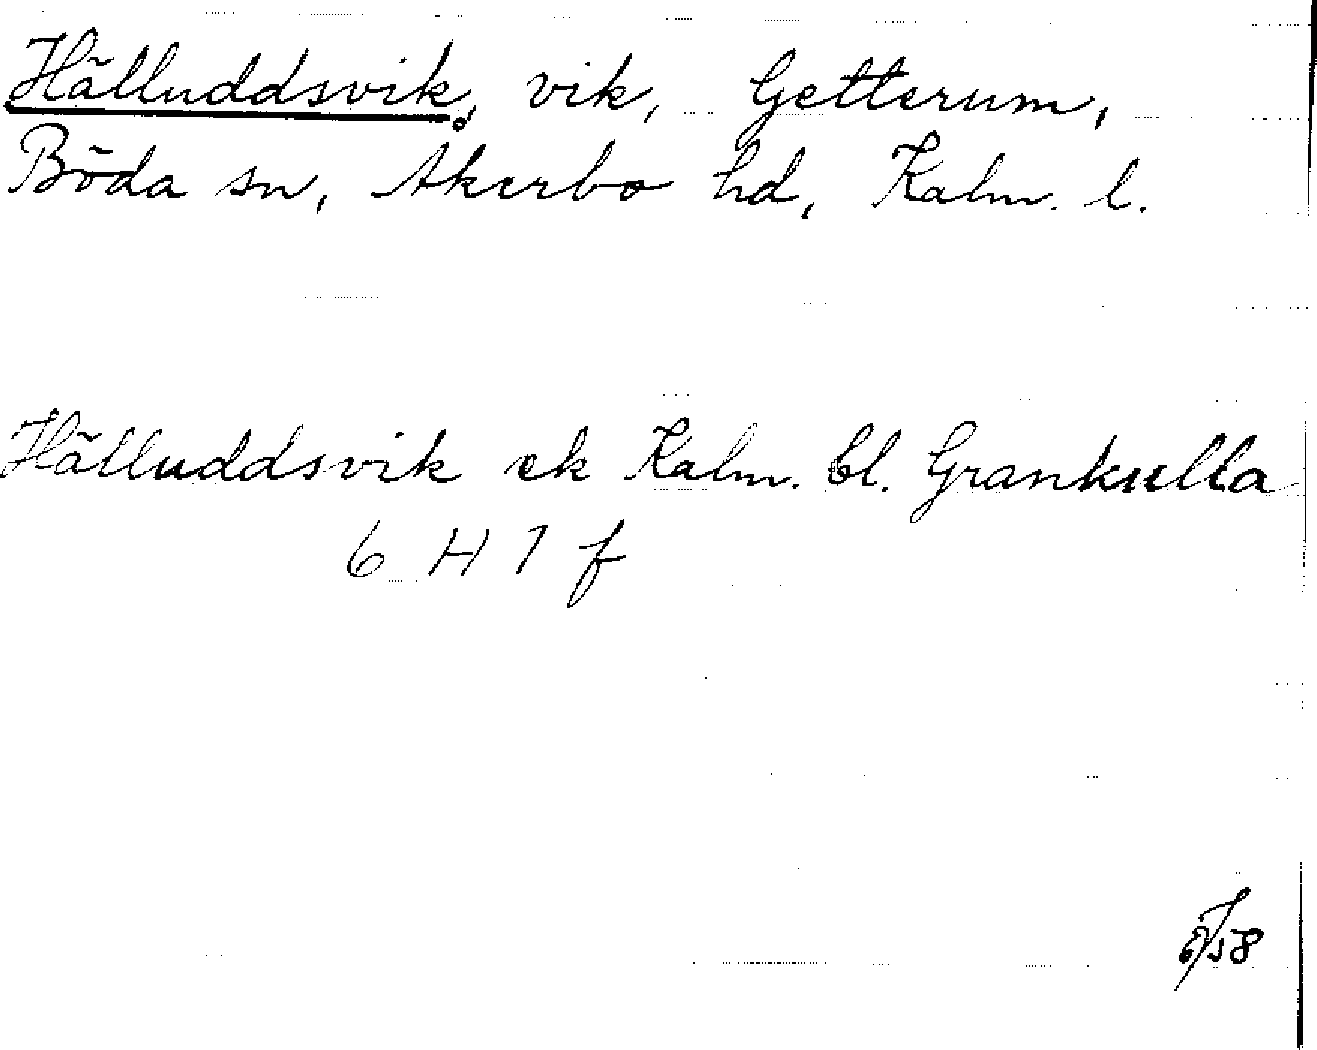 Hälluddsvik, vik, Getterum,
Böda sn, Åkerbo hd, Kalm. l.
Hälluddsvik ek Kalm. bl. Grankulla
6 H 1 f